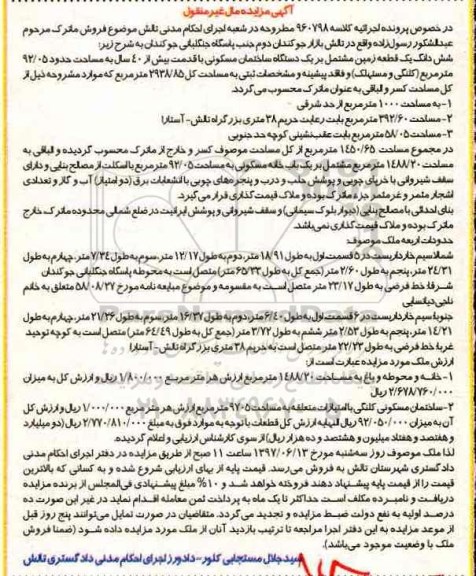 آگهی مزایده مال غیر منقول
در خصوص پرونده اجرائیه کلاسه ۹۶۰۷۹۸ مطروحه در شعبه اجرای احکام مدنی تالش موضوع فروش ماترک مرحوم
عبدالشکور رسول زاده واقع در تالش بازار جوکندان دوم جنب پاسگاه جنگلبانی جوکندان به شرح زیر:
شش دانگ یک قطعه زمین مشتمل بر یک دستگاه ساختمان مسکونی با قدمت بیش از ۴۰ سال به مساحت حدود ۹۲/۰۵
مترمربع (کلنگی و مستهلک) و فاقد پیشینه و مشخصات ثبتی به مساحت کل ۲۹۳۸/۸۵ مترمربع که موارد مشروحه ذیل از
کل مساحت کسر و الباقی به عنوان ماترک محسوب می گردد.
۱- به مساحت ۱۰۰۰ مترمربع از حد شرقی
۲- مساحت ۳۹۲/۶۰ مترمربع بابت رعایت حریم ۳۸ متری بزرگراه تالش- آستارا
۳- مساحت ۵۸/۰۵ مترمربع بابت عقب نشینی کوچه حد جنوبی
در مجموع مساحت ۱۴۵۰/۶۵ مترمربع از کل مساحت موصوف کسر و خارج از ماترک محسوب گردیده و الباقی به
مساحت ۱۴۸۸/۲۰ مترمربع مشتمل بر یک باب خانه مسکونی به مساحت ۹۲/۰۵ مترمربع با اسکلت از مصالح بنایی و دارای
سقف شیروانی با خرپای چوبی و پوشش حلب و درب و پنجره های چوبی با انشعابات برق (دو امتیاز) آب و گاز و تعدادی
اشجار مثمر و غیرمثمر جزء ماترک بوده و ملاک قیمت گذاری قرار می گیرد.
بنای احداثی با مصالح بنایی (دیوار بلوک سیمانی) و سقف شیروانی و پوشش ایرانیت در ضلع شمالی محدوده ماترک خارج
ماترک بوده و ملاک قیمت گذاری نمی باشد.
حدودات اربعه ملک موصوف:
شمالا سیم خارداریست در ۵ قسمت اول به طول ۱۸/۹۱ متر، دوم به طول ۱۲/۱۷ متر، سوم به طول ۷/۳۴ متر، چهارم به طول
۲۴/۳۱ متر، پنجم به طول ۲/۶۰ متر (جمع کل به طول ۶۵/۳۳ متر) متصل است به محوطه پاسگاه جنگلبانی جوکندان
شرقا: خط فرضی به طول ۲۳/۱۷ متر متصل است به مقسومه و موضوع مبایعه نامه مورخ ۵۸/۰۸/۲۷ متعلق به خانم
ناجی دیانسایی
جنوبا سیم خارداریست در ۶ قسمت اول به طول ۶/۴۰ متر، دوم به طول ۱۶/۳۷ متر، سوم به طول ۲۱/۲۶ متر، چهارم به طول
۱۴/۲۱ متر، پنجم به طول ۲/۵۳ متر ششم به طول ۳/۷۲ متر (جمع کل به طول ۶۴/۴۹ متر) متصل است به کوچه توحید
غربا خط فرضی به طول ۲۲/۲۳ متر متصل است به حریم ۳۸ متری بزرگراه تالش- آستارا
ارزش ملک مورد مزایده عبارت است از:
۱- خانه و محوطه و باغ به مساحت ۱۴۸۸/۲۰ مترمربع ارزش هر متر مربع ۱/۸۰۰/۰۰۰ ریال و ارزش کل به میزان
۲/۶۷۸/۷۶۰/۰۰۰ ریال
۲- ساختمان مسکونی کلنگی با امتیازات متعلقه به مساحت ۹۲/۰۵ مترمربع ارزش هر متر مربع ۱/۰۰۰/۰۰۰ ریال و ارزش کل
آن به میزان ۹۲/۰۵۰/۰۰۰ ریال النهایه ارزش کل قطعات با توجه به موارد فوق به مبلغ ۲/۷۷۰/۸۱۰/۰۰۰ ریال (دو میلیارد
و هفتصد و هفتاد میلیون و هشتصد و ده هزار ریال) از سوی کارشناس ارزیابی و اعلام گردیده.
لذا ملک موصوف روز سه شنبه مورخ ۱۳۹۷/۰۶/۱۳ ساعت ۱۱ صبح از طریق مزایده در دفتر اجرای احکام مدنی
دادگستری شهرستان تالش به فروش می رسد. قیمت پایه از بهای ارزیابی شروع شده و به کسانی که بالاترین
قیمت را از قیمت پایه پیشنهاد دهند فروخته خواهد شد و ۱۰% مبلغ پیشنهادی فی المجلس از برنده مزایده
دریافت و نامبرده مکلف است حداکثر تا یک ماه به پرداخت ثمن معامله اقدام نماید در غیر این صورت ده
درصد اولیه به نفع دولت ضبط مزایده و تجدید می گردد. متقاضیان در صورت تمایل می توانند پنج روز قبل
از موعد مزایده به این دفتر اجرا مراجعه تا ترتیب بازدید آنان از ملک مورد مزایده داده شود (ضمنا فروش
ملک با وضعیت موجود می باشد).
سید جلال مستجابی کلور- دادورز اجرای احکام مدنی دادگستری تالش